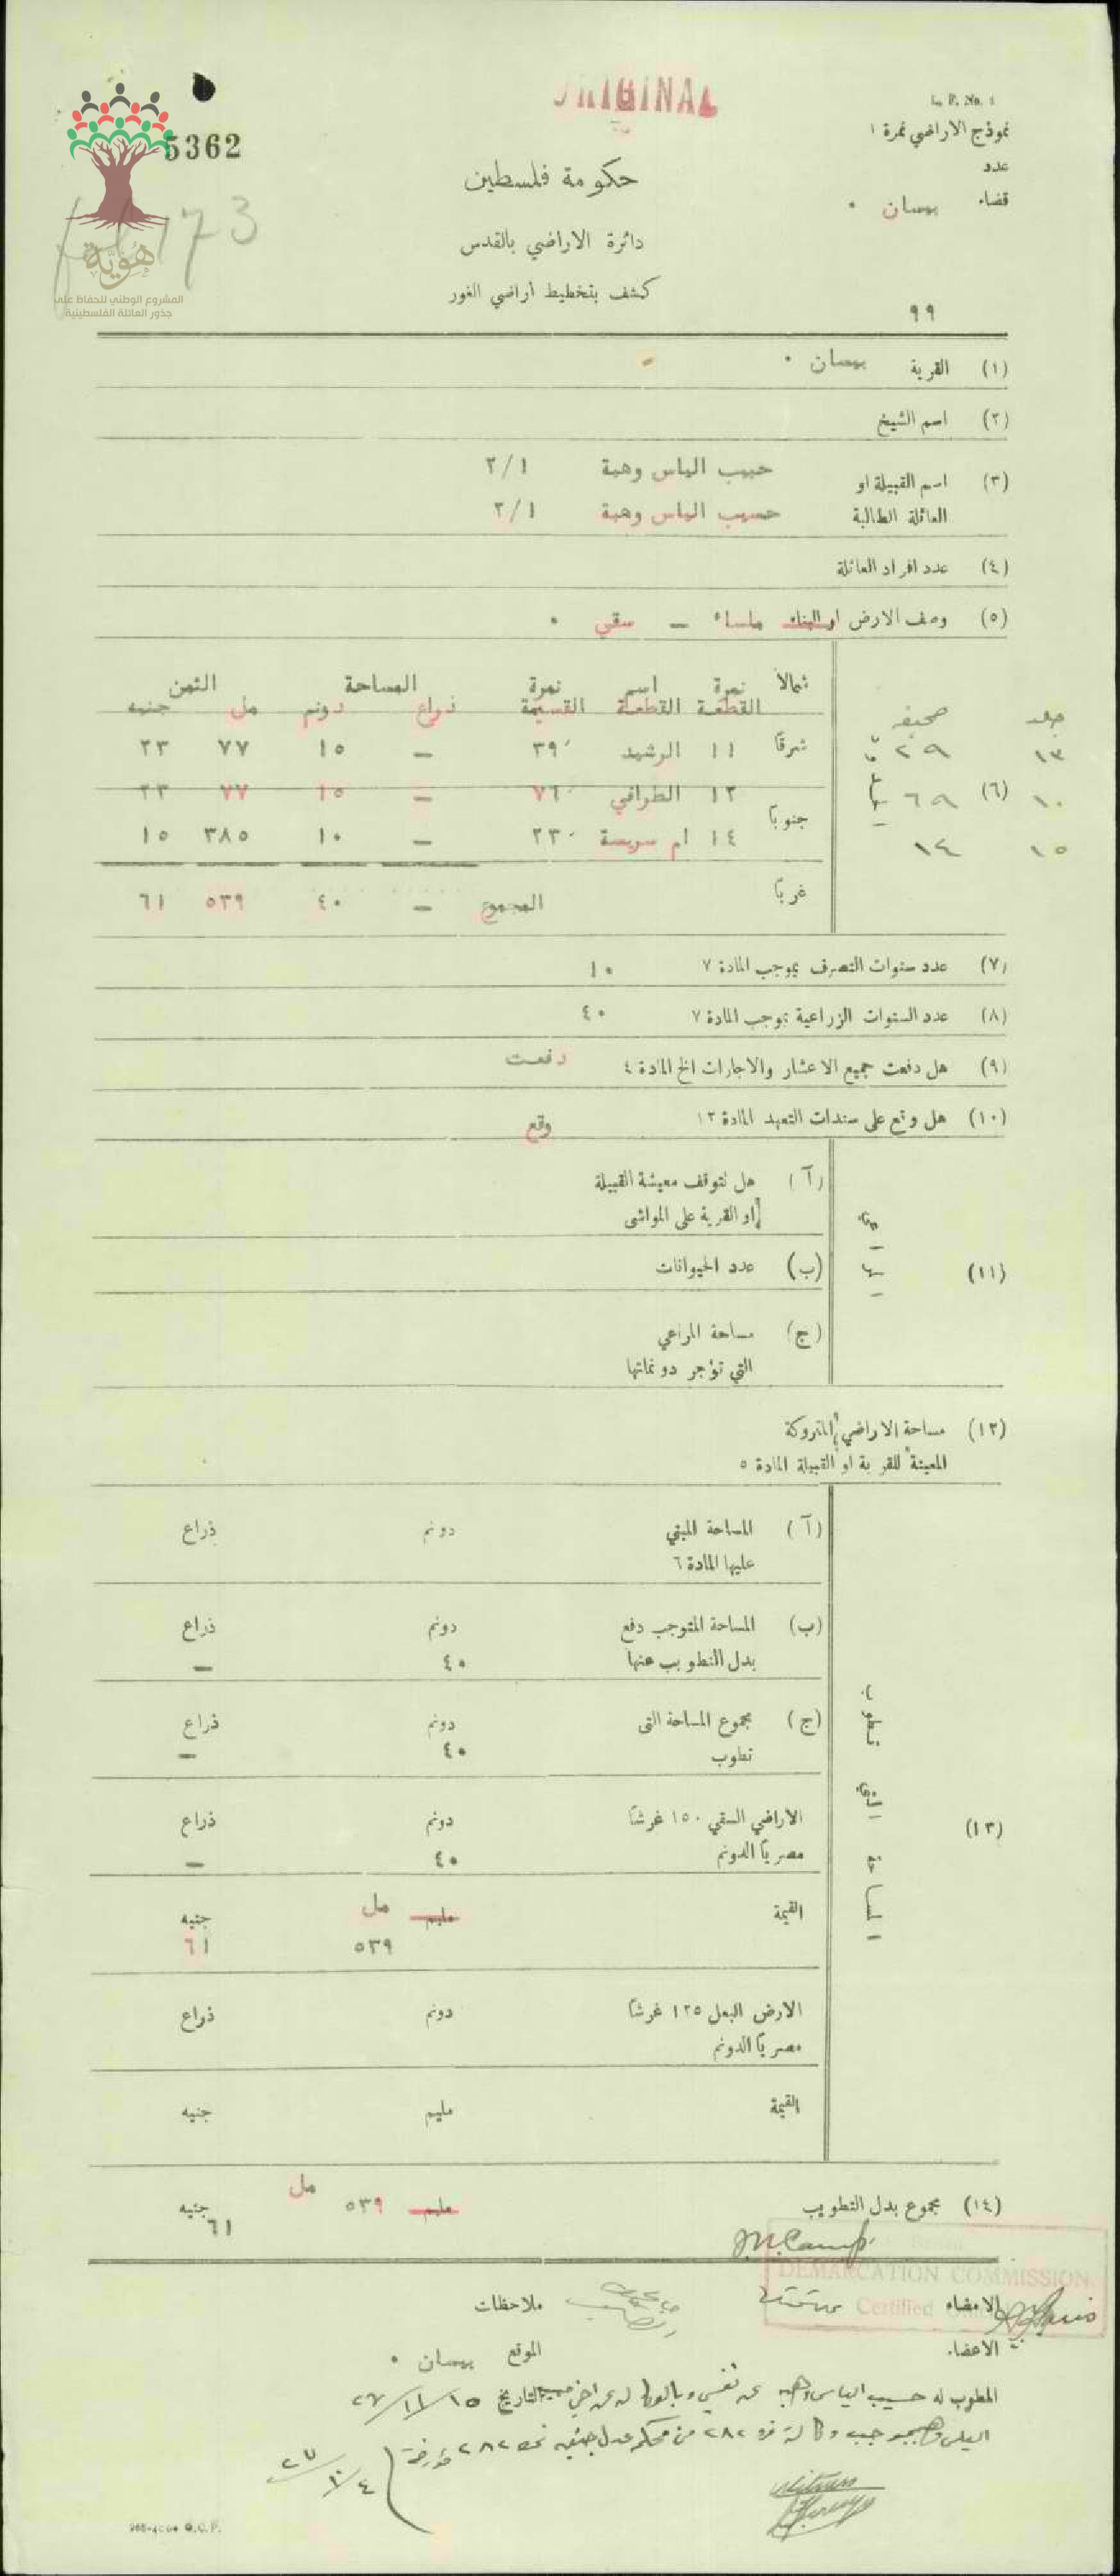 ORIGINAL
L. P. No. 1
نموذج الاراضي نمرة ١
5362
عدد
حكومة فلسطين
قضاء بيسان ٠
173
دائرة الاراضي بالقدس
كشف بتخطيط اراضي الغور
هُوِيَّة
المشروع الوطني للحفاظ على
جذور العائلة الفلسطينية
٩٩
(١) القرية بيسان ٠
(٢) اسم الشيخ
(٣) اسم القبيلة او حبيب الياس وهبة ٢/١
العائلة الطالبة حسيب الياس وهبة ٢/١
(٤) عدد افراد العائلة
(٥) وصف الارض او البناء ماساء — سقي ٠
شمالاً نمرة اسم نمرة المساحة الثمن
جلد صحيفه القطعة القطعة القسيمة ذراع دونم مل جنيه
١٣ ٢٩ شرقاً ١١ الرشيد ٣٩ — ١٥ ٧٧ ٢٣
١٠ (٦) ٦٩ ١٢ الطرافي ٧٦ — ١٥ ٧٧ ٢٣
١٥ ١٤ جنوباً ١٤ ام سريسة ٢٣ — ١٠ ٣٨٥ ١٥
غرباً المجموع — ٤٠ ٥٣٩ ٦١
(٧) عدد سنوات التصرف بموجب المادة ٧ ١٠
(٨) عدد السنوات الزراعية بموجب المادة ٧ ٤٠
(٩) هل دفعت جميع الاعشار والاجارات الخ المادة ٤ دفعت
(١٠) هل وقع على سندات التعهد المادة ١٢ وقع
(١١)
(آ) هل تتوقف معيشة القبيلة
او القرية على المواشي
(ب) عدد الحيوانات
(ج) مساحة المراعي
التي تؤجر دونماتها
(١٢) مساحة الاراضي المتروكة
المعينة للقرية او القبيلة المادة ٥
(١٣) المساحة التي تطوب
(آ) المساحة المبني دونم ذراع
عليها المادة ٦
(ب) المساحة المتوجب دفع دونم ذراع
بدل التطويب عنها ٤٠ —
(ج) مجموع المساحة التي دونم ذراع
تطوب ٤٠ —
الاراضي السقي ١٥٠ غرشاً دونم ذراع
مصرياً الدونم ٤٠ —
القيمة مليم مل جنيه
٥٣٩ ٦١
الارض البعل ١٢٥ غرشاً دونم ذراع
مصرياً الدونم
القيمة مليم جنيه
(١٤) مجموع بدل التطويب مليم ٥٣٩ مل جنيه
٦١
DEMARCATION COMMISSION
Certified
الامضاء ملاحظات
الاعضاء الموقع بيسان ٠
المطوب له حسيب الياس وهبه عن نفسي وبالوكالة عن اخي حبيب التاريخ ١٥/١١/٢٧
الياس وهبه بموجب وكالة نمرة ٢٨٢ من محكمة عدل جنين
٤/١٠/٢٧